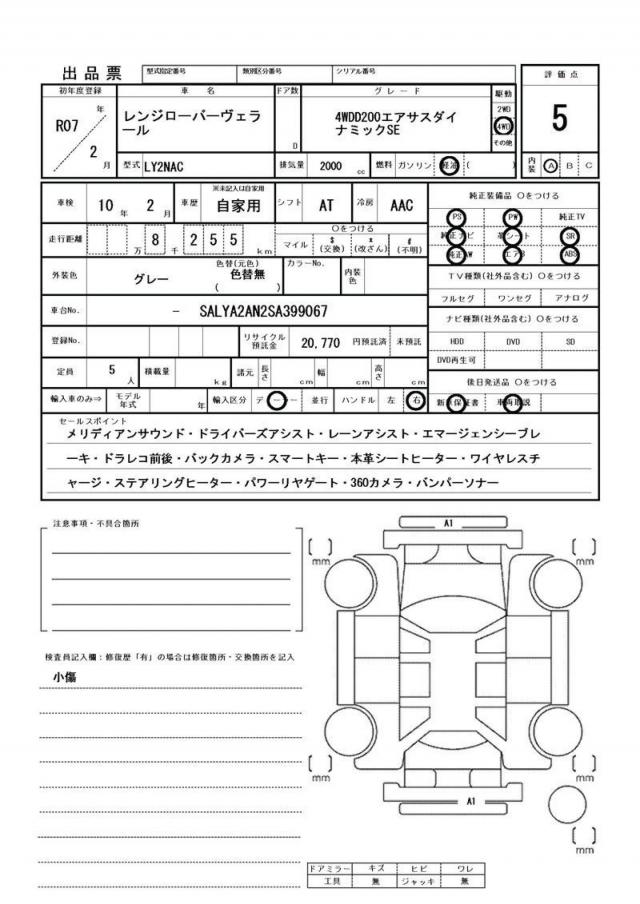 出品票 型式指定番号 類別区分番号 シリアル番号
初年度登録 車名 ドア数 グレード 駆動 評価点
R07 年 2 月
レンジローバーヴェラ
ール
D
4WDD200エアサスダイ
ナミックSE
2WD
4WD
その他
5
型式 LY2NAC 排気量 2000 cc 燃料 ガソリン 軽油 ( ) 内装 A B C
車検 10 年 2 月 車歴 ※未記入は自家用 自家用 シフト AT 冷房 AAC
純正装備品 〇をつける
PS PW 純正TV
走行距離 万 8 千 2 5 5 km 〇をつける
マイル $(交換) x(改ざん) #(不明)
純正ナビ 革シート SR
純正AW エアB ABS
外装色 グレー 色替(元色) 色替無 ( ) カラーNo. 内装色
TV種類(社外品含む) 〇をつける
フルセグ ワンセグ アナログ
車台No. − SALYA2AN2SA399067
ナビ種類(社外品含む) 〇をつける
登録No. リサイクル預託金 20,770 円預託済 未預託
HDD DVD SD
DVD再生可
定員 5 人 積載量 kg 諸元 長さ cm 幅 cm 高さ cm
後日発送品 〇をつける
輸入車のみ⇒ モデル年式 年 輸入区分 ディーラー 並行 ハンドル 左 右
新車保証書 車両取説
セールスポイント
メリディアンサウンド・ドライバーズアシスト・レーンアシスト・エマージェンシーブレ
ーキ・ドラレコ前後・バックカメラ・スマートキー・本革シートヒーター・ワイヤレスチ
ャージ・ステアリングヒーター・パワーリヤゲート・360カメラ・バンパーソナー
注意事項・不具合箇所
A1
[ ] mm
[ ] mm
検査員記入欄：修復歴「有」の場合は修復箇所・交換箇所を記入
小傷
[ ] mm
[ ] mm
A1
[ ] mm
ドアミラー キズ ヒビ ワレ
工具 無 ジャッキ 無